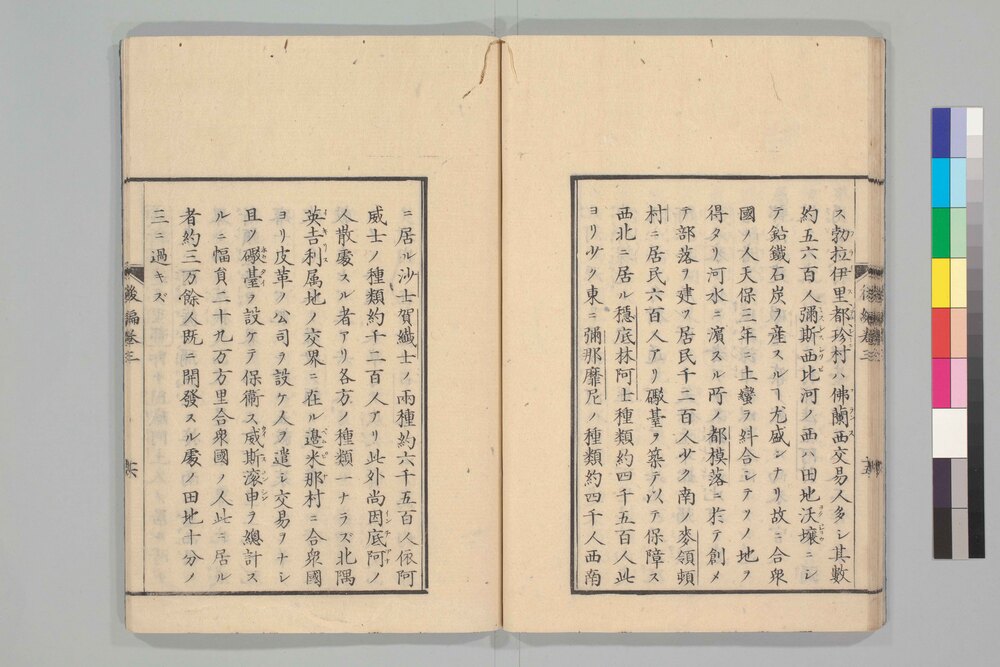 ス勃拉伊里都珍村ハ佛蘭西交易人多シ其數
約五六百人彌斯西比河ノ西ハ田地沃壤ニシ
テ鉛鐵石炭ヲ産スルヿ尤盛ンナリ故ニ合衆
國ノ人天保三年ニ土蠻ヲ糾合シテソノ地ヲ
得タリ河水ニ濱スル所ノ都模落ニ於テ創メ
テ部落ヲ建ツ居民千二百人少ク南ノ麥領頓
村ニ居民六百人アリ礮臺ヲ築テ以テ保障ス
西北ニ居ル穩底林阿士種類約四千五百人此
ヨリ少ク東ニ彌那靡尼ノ種類約四千人西南
ニ居ル沙士賀纎士ノ兩種約六千五百人依阿
威士ノ種類約千二百人アリ此外尚因底阿ノ
人散處スル者アリ各方ノ種類一ナラズ北隅
英吉利属地ノ交界ニ在ル邉米那村ニ合衆國
ヨリ皮革ノ公司ヲ設ケ人ヲ遣シ交易ヲナシ
且ツ礮臺ヲ設ケテ保衞ス威斯滾申ヲ總計ス
ルニ幅員二十九万方里合衆國ノ人此ニ居ル
者約三万餘人既ニ開發スル處ノ田地十分ノ
三ニ過キズ
後編卷三